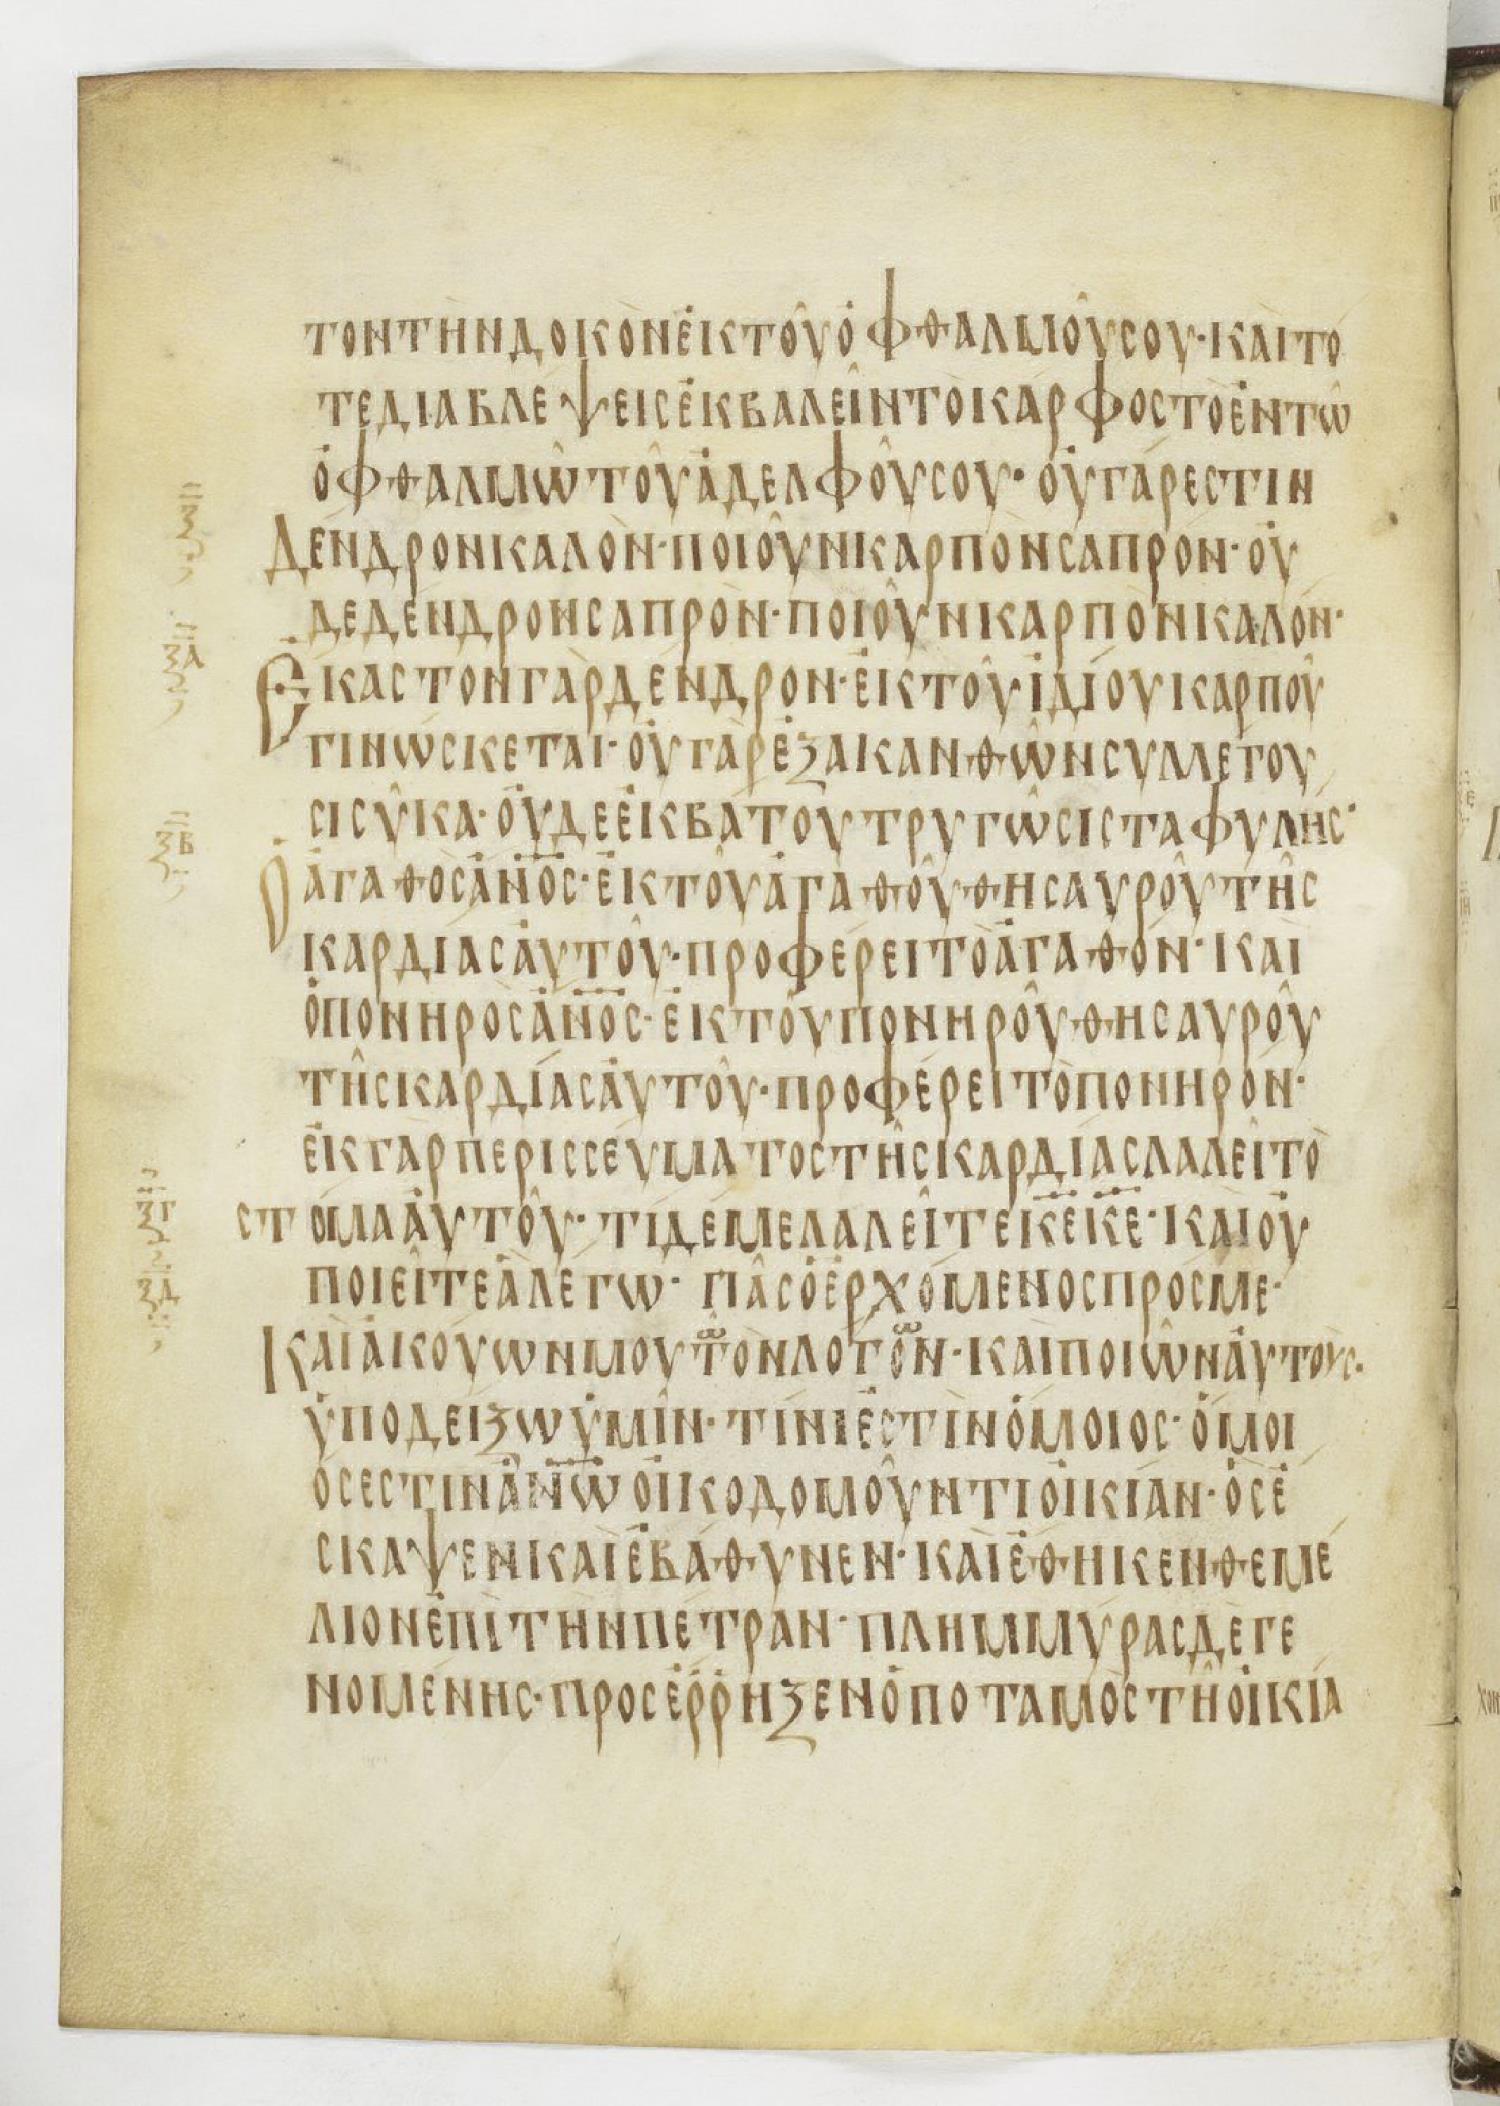 ΤΟΝΤῊΝΔΟΚῸΝἘΚΤΟῦὈΦΘΑΛΜΟῦΣΟΥ·ΚΑῚΤΌ
ΤΕΔΙΑΒΛΕΨΕΙΣἘΚΒΑΛΕῖΝΤῸΚΑΡΦΟΣΤῸἘΝΤῶ
ὈΦΘΑΛΜῶΤΟῦἈΔΕΛΦΟῦΣΟΥ· ΟὐΓΆΡΕΣΤΙΝ
ΔΈΝΔΡΟΝΚΑΛῸΝ·ΠΟΙΟῦΝΚΑΡΠῸΝΣΑΠΡΌΝ·Οὐ
ΔΕΔΕΝΔΡΟΝΣΑΠΡῸΝ·ΠΟΙΟῦΝΚΑΡΠῸΝΚΑΛΌΝ·
ἝΚΑΣΤΟΝΓᾺΡΔΈΝΔΡΟΝ·ἘΚΤΟῦἸΔΊΟΥΚΑΡΠΟῦ
ΓΙΝΏΣΚΕΤΑΙ·ΟὐΓᾺΡἘΞΑΚΑΝΘῶΝΣΥΛΛΈΓΟΥ
ΣΙΣῦΚΑ·ΟὐΔΕἘΚΒΆΤΟΥΤΡΥΓῶΣΙΣΤΑΦΥΛΉΣ·
ὉἈΓΑΘῸΣἈΝΟΣ·ἘΚΤΟῦἈΓΑΘΟῦΘΗΣΑΥΡΟῦΤῆΣ
ΚΑΡΔΊΑΣἈΥΤΟῦ·ΠΡΟΦΈΡΕΙΤῸἈΓΑΘΌΝ·ΚΑῚ
ὉΠΟΝΗΡῸΣἈΝΟΣ·ἘΚΤΟῦΠΟΝΗΡΟῦΘΗΣΑΥΡΟῦ
ΤῆΣΚΑΡΔΊΑΣἈΥΤΟῦ·ΠΡΟΦΈΡΕΙΤῸΠΟΝΗΡΌΝ·
ἘΚΓᾺΡΠΕΡΙΣΣΕΎΜΑΤΟΣΤῆΣΚΑΡΔΊΑΣΛΑΛΕῖΤῸ
ΣΤΌΜΑἈΥΤΟῦ· ΤΊΔΕΜΕΛΑΛΕῖΤΕΚΕΚΕ·ΚΑῚΟὐ
ΠΟΙΕῖΤΕἈΛΈΓΩ· ΠᾶΣὉἘΡΧΌΜΕΝΟΣΠΡΌΣΜΕ·
ΚΑῚἈΚΟΎΩΝΜΟΥΤῸΝΛΌΓΟΝ·ΚΑῚΠΟΙῶΝἈΥΤΟῪΣ·
ὑΠΟΔΕΊΞΩὑΜῖΝ·ΤΊΝΙἘΣΤῚΝὍΜΟΙΟΣ·ὍΜΟΙ
ΌΣΕΣΤΙΝἈΝΩΟἸΚΟΔΟΜΟῦΝΤΙΟἸΚΊΑΝ·ὉΣἘ
ΣΚΑΨΕΝΚΑῚἘΒΆΘΥΝΕΝ·ΚΑῚἜΘΗΚΕΝΘΕΜΈ
ΛΙΟΝἘΠῚΤῊΝΠΈΤΡΑΝ·ΠΛΗΜΜΎΡΑΣΔΈΓΕ
ΝΟΜΈΝΗΣ·ΠΡΟΣΈῤῥΗΞΕΝὉΠΟΤΑΜῸΣΤῆΟἸΚΊΑ
ΞΑ
ΞΒ
ΞΓ
ΞΔ